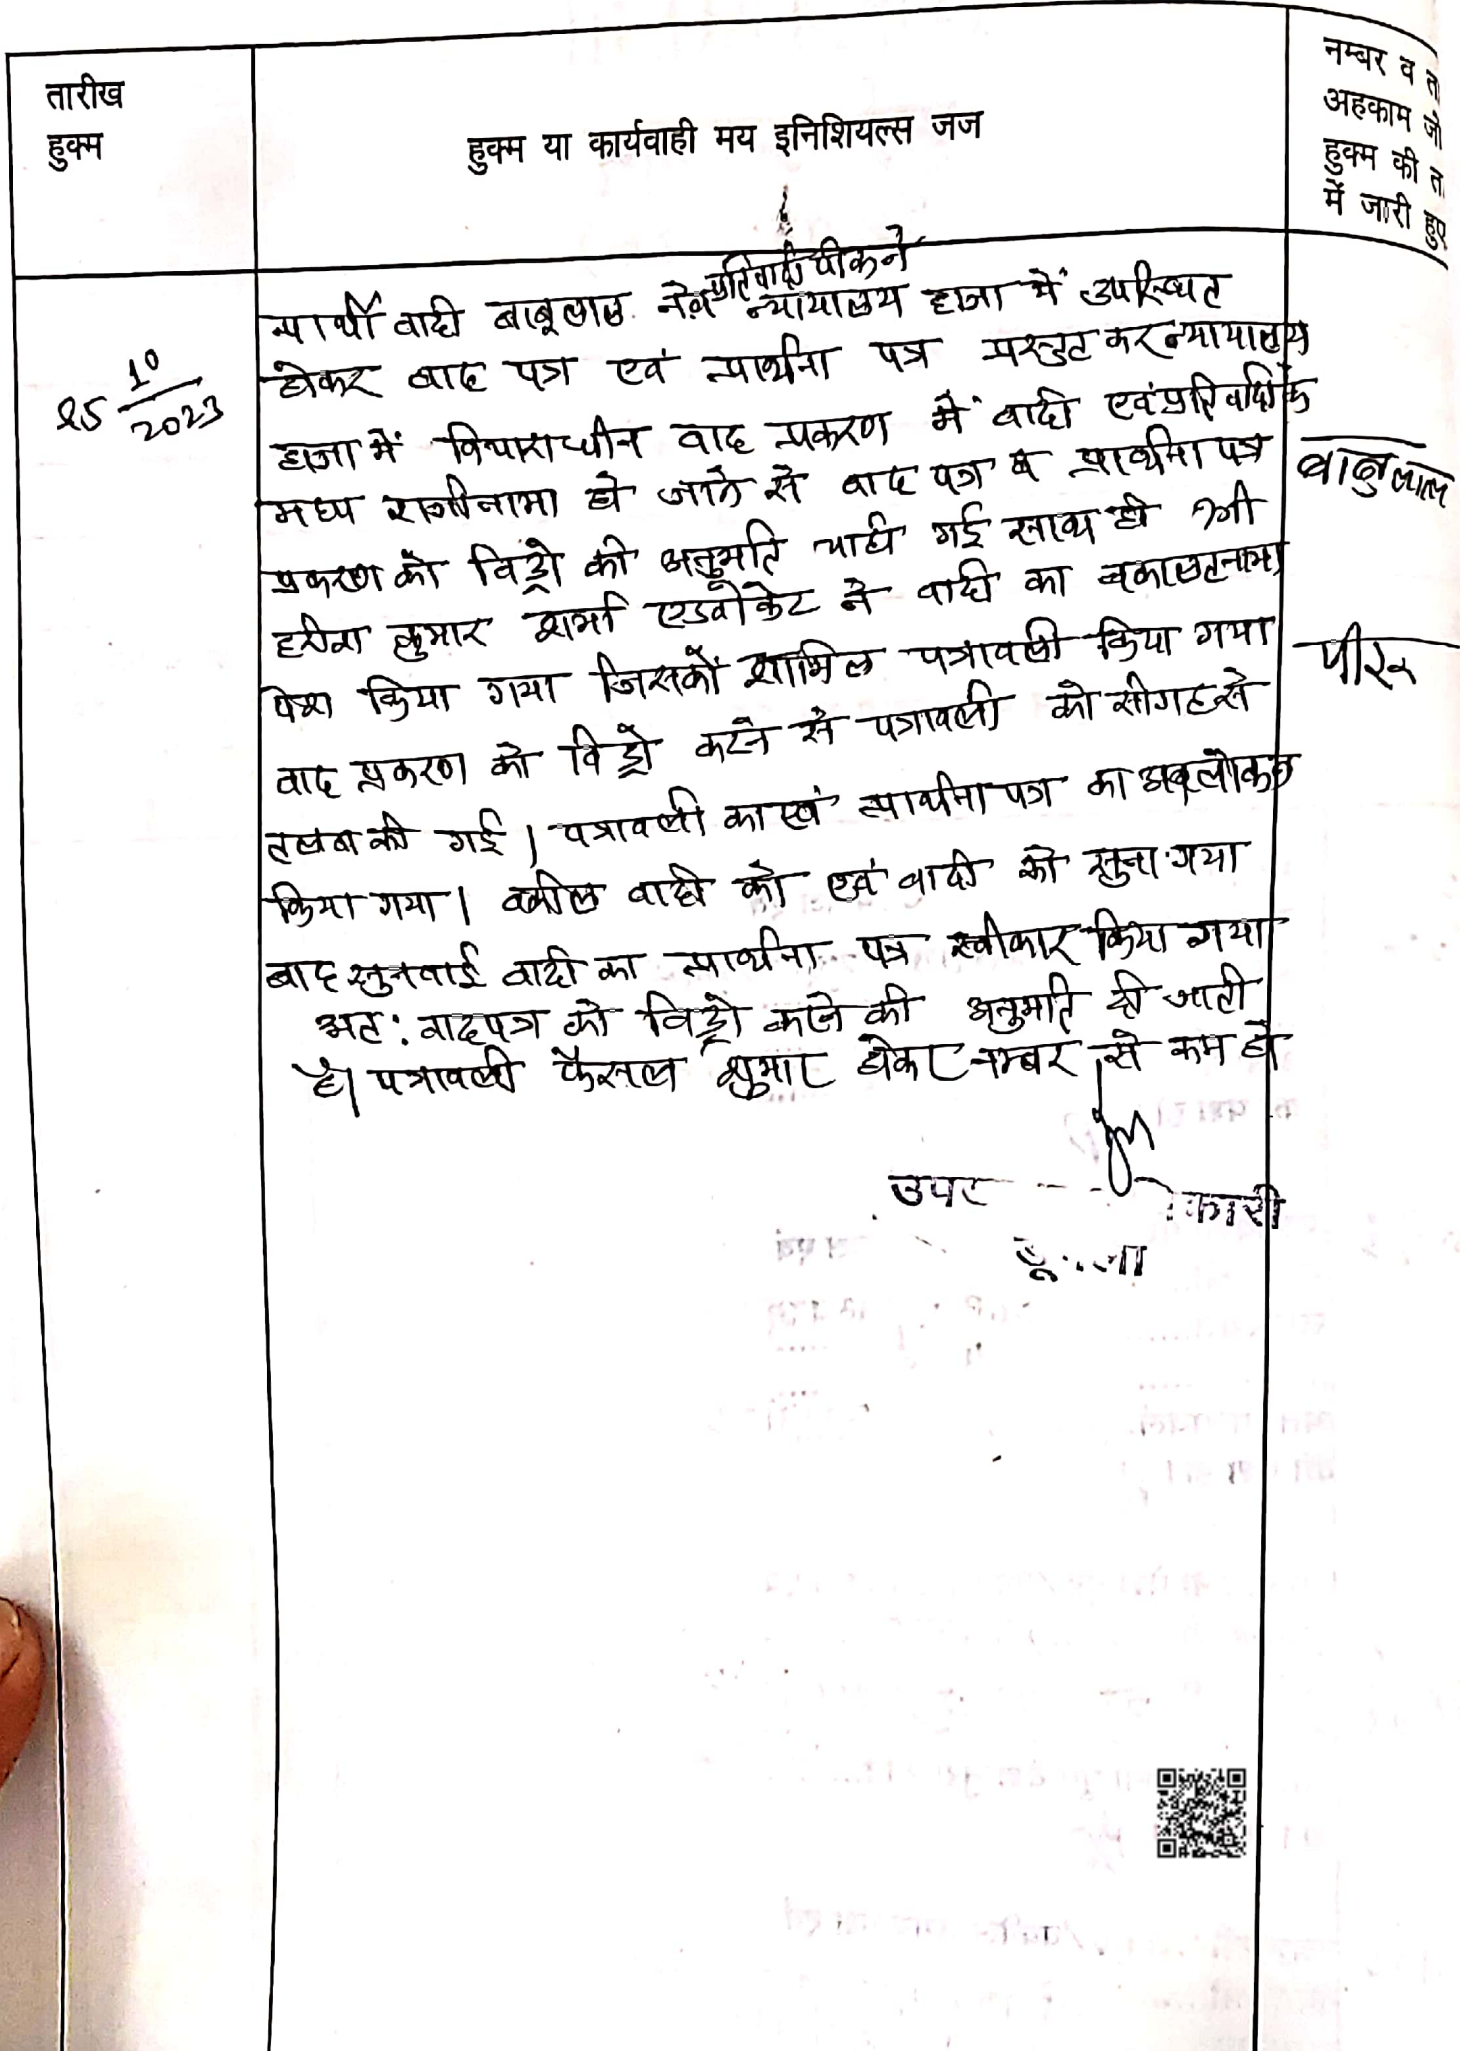 तारीख
हुक्म
हुक्म या कार्यवाही मय इनिशियल्स जज
नम्बर व
अहकाम जो
हुक्म की
में जारी हुए
25 10/2023
प्रतिवादी ने
प्रार्थी वादी बाबूलाल न्यायालय हाजा में उपस्थित
होकर वाद पत्र एवं प्रार्थना पत्र प्रस्तुत कर न्यायालय
हाजा में विचाराधीन वाद प्रकरण में वादी एवं प्रतिवादी के
मध्य राजीनामा हो जाने से वाद पत्र व प्रार्थना पत्र
प्रकरण को विड्रो की अनुमति चाही गई साथ ही श्री
कुमार शर्मा एडवोकेट ने वादी का वकालतनामा
पेश किया गया जिसको शामिल पत्रावली किया गया
वाद प्रकरण को विड्रो करने से पत्रावली को सीगह से
तलब की गई । पत्रावली का एवं प्रार्थना पत्र का अवलोकन
किया गया । वकील वादी को एवं वादी को सुना गया
बाद सुनवाई वादी का प्रार्थना पत्र स्वीकार किया गया
अत: वादपत्र को विड्रो करने की अनुमति दी जाती
है। पत्रावली फैसल शुमार होकर नम्बर से कम हो
बाबुलाल